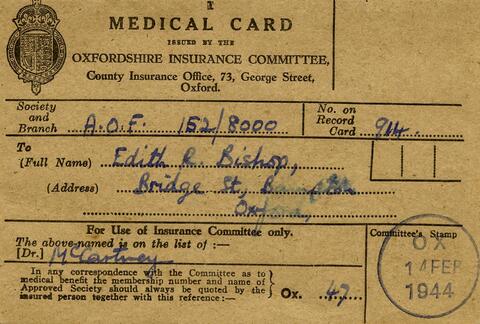 I
MEDICAL CARD
ISSUED BY THE
OXFORDSHIRE INSURANCE COMMITTEE,
County Insurance Office, 73, George Street,
Oxford.
Society and Branch A.O.F. 152/8000
No. on Record Card 914.
To
(Full Name) Edith R. Bishop,
(Address) Bridge St, Bampton
Oxford,
For Use of Insurance Committee only.
The above-named is on the list of :—
[Dr.] McCartney
In any correspondence with the Committee as to
medical benefit the membership number and name of
Approved Society should always be quoted by the
insured person together with this reference :—
Ox. 47
Committee's Stamp
OX
14 FEB
1944